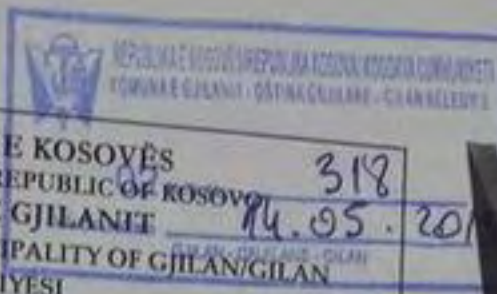 REPUBLIKA E KOSOVËS/REPUBLIKA KOSOVA/KOSOVA CUMHURIYETI
KOMUNA E GJILANIT - OPŠTINA GNJILANE - GILAN BELEDIYESI
E KOSOVËS 318
REPUBLIC OF KOSOVO
GJILANIT 14.05.20
IPALITY OF GJILAN/GILAN
IYESI